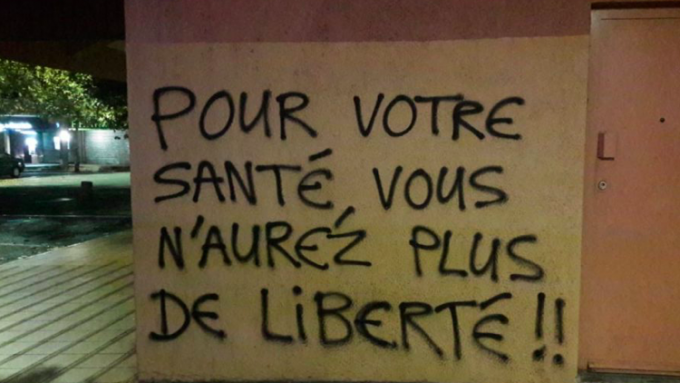 POUR VOTRE
SANTÉ, VOUS
N'AUREZ PLUS
DE LiBERTÉ!!